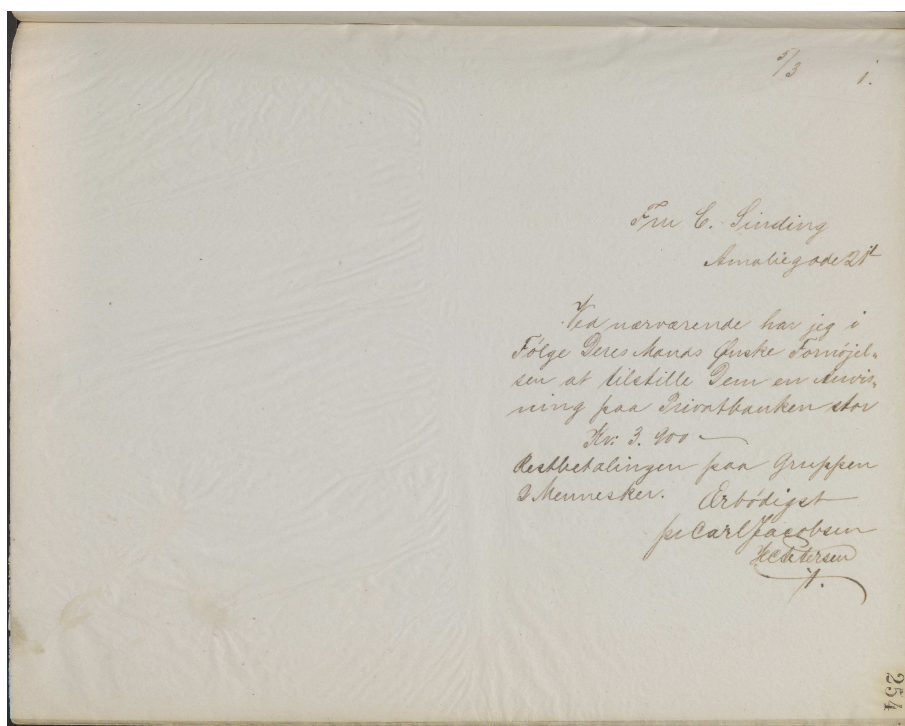 5/3 1.
Fru C. Sinding
Amaliegade 21
Ved nærværende har jeg i
Følge Deres Mands Ønske Fornøjel-
sen at tilstille Dem en Anvis-
ning paa Privatbanken stor
Kr. 3.900 —
Restbetalingen paa Gruppen
2 Mennesker. Ærbødigst
pr Carl Jacobsen
HC Petersen
254